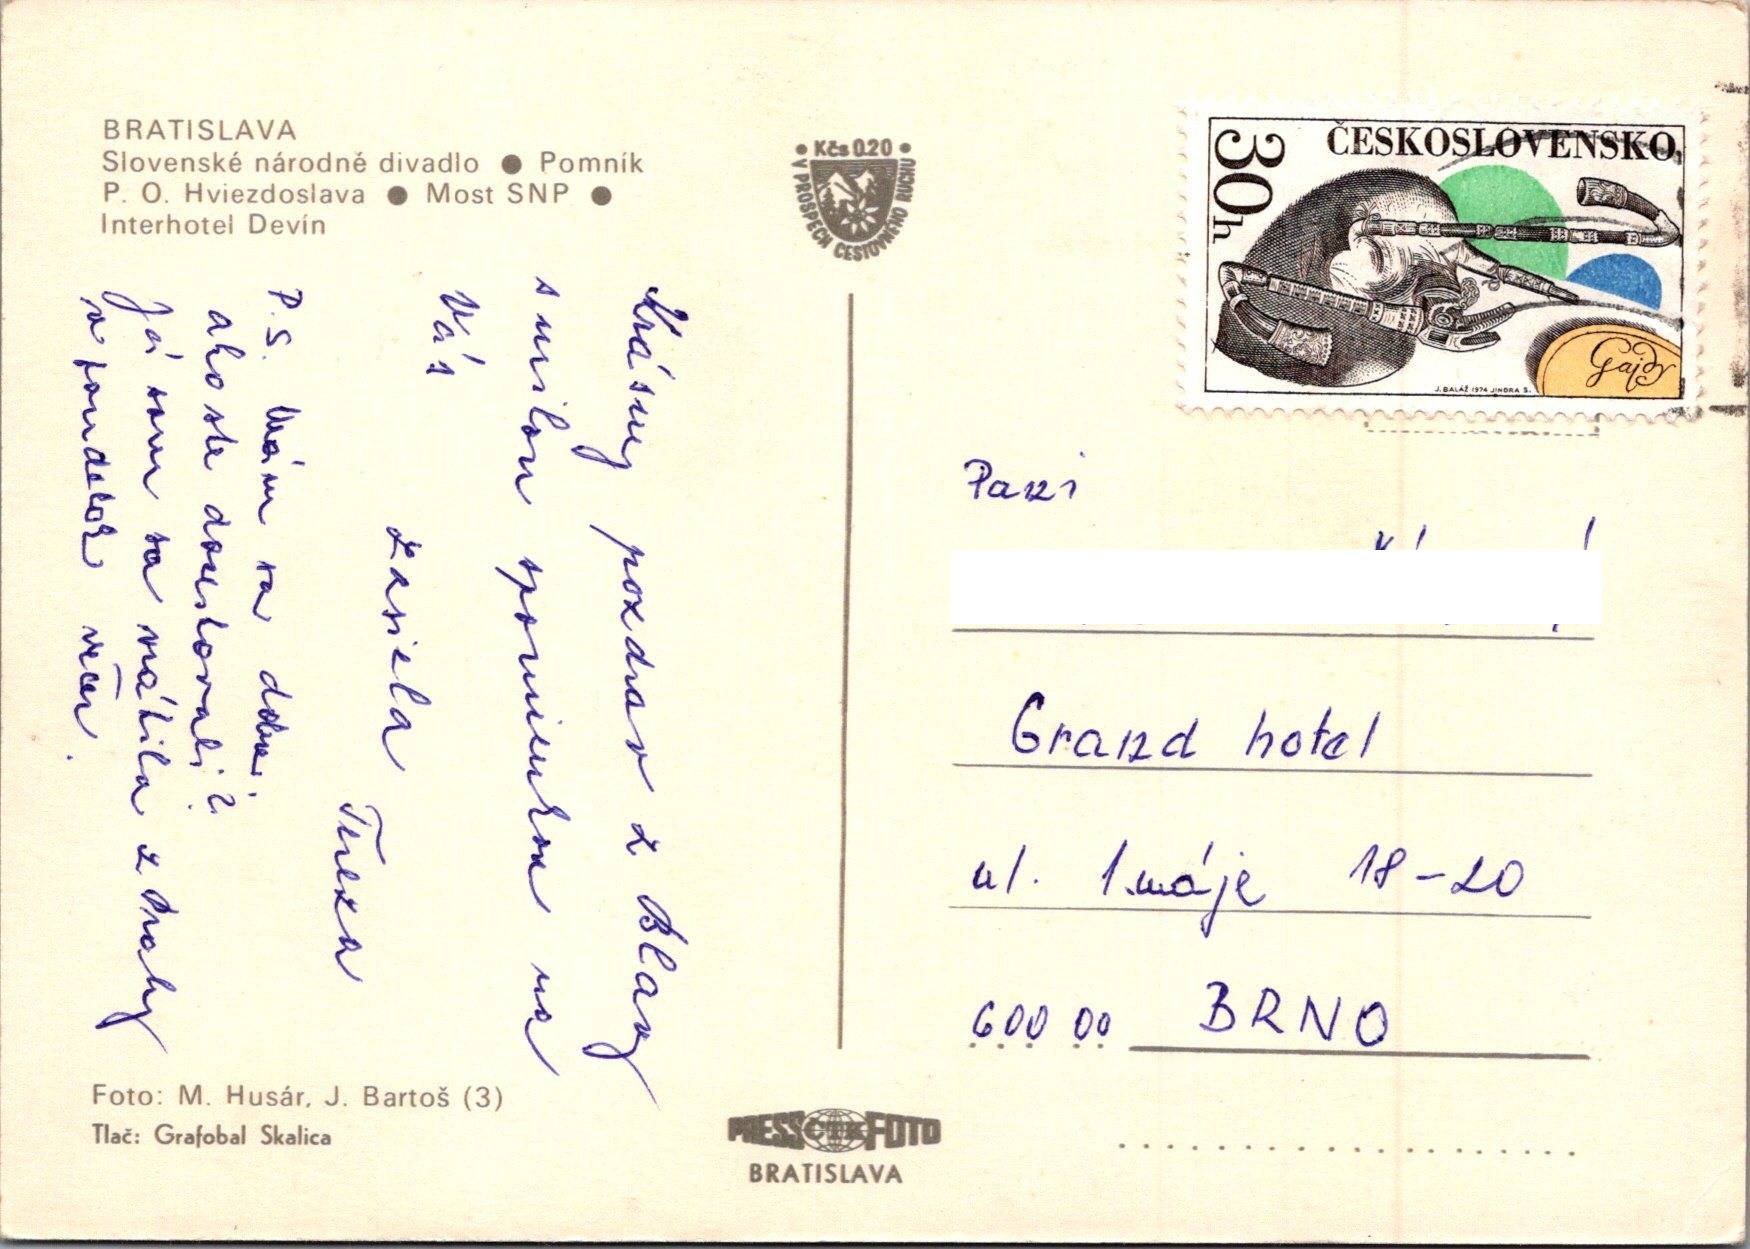 BRATISLAVA
Slovenské národné divadlo ● Pomník
P. O. Hviezdoslava ● Most SNP ●
Interhotel Devín
• Kčs 0.20 •
V PROSPECH CESTOVNÉHO RUCHU
30h
ČESKOSLOVENSKO
Gajdy
J. BALÁŽ 1974 JINDRA S.
Krásny pozdrav z Blavy
s milou spomienkou na
Vás
zasiela
Tereza
P.S. Mám sa dobre.
ako ste docestovali?
Já som sa vrátila z Prahy
v pondelok večer.
Paní
Grand hotel
ul. 1.máje 18-20
600 00 BRNO
Foto: M. Husár, J. Bartoš (3)
Tlač: Grafobal Skalica
PRESS ČTK FOTO
BRATISLAVA